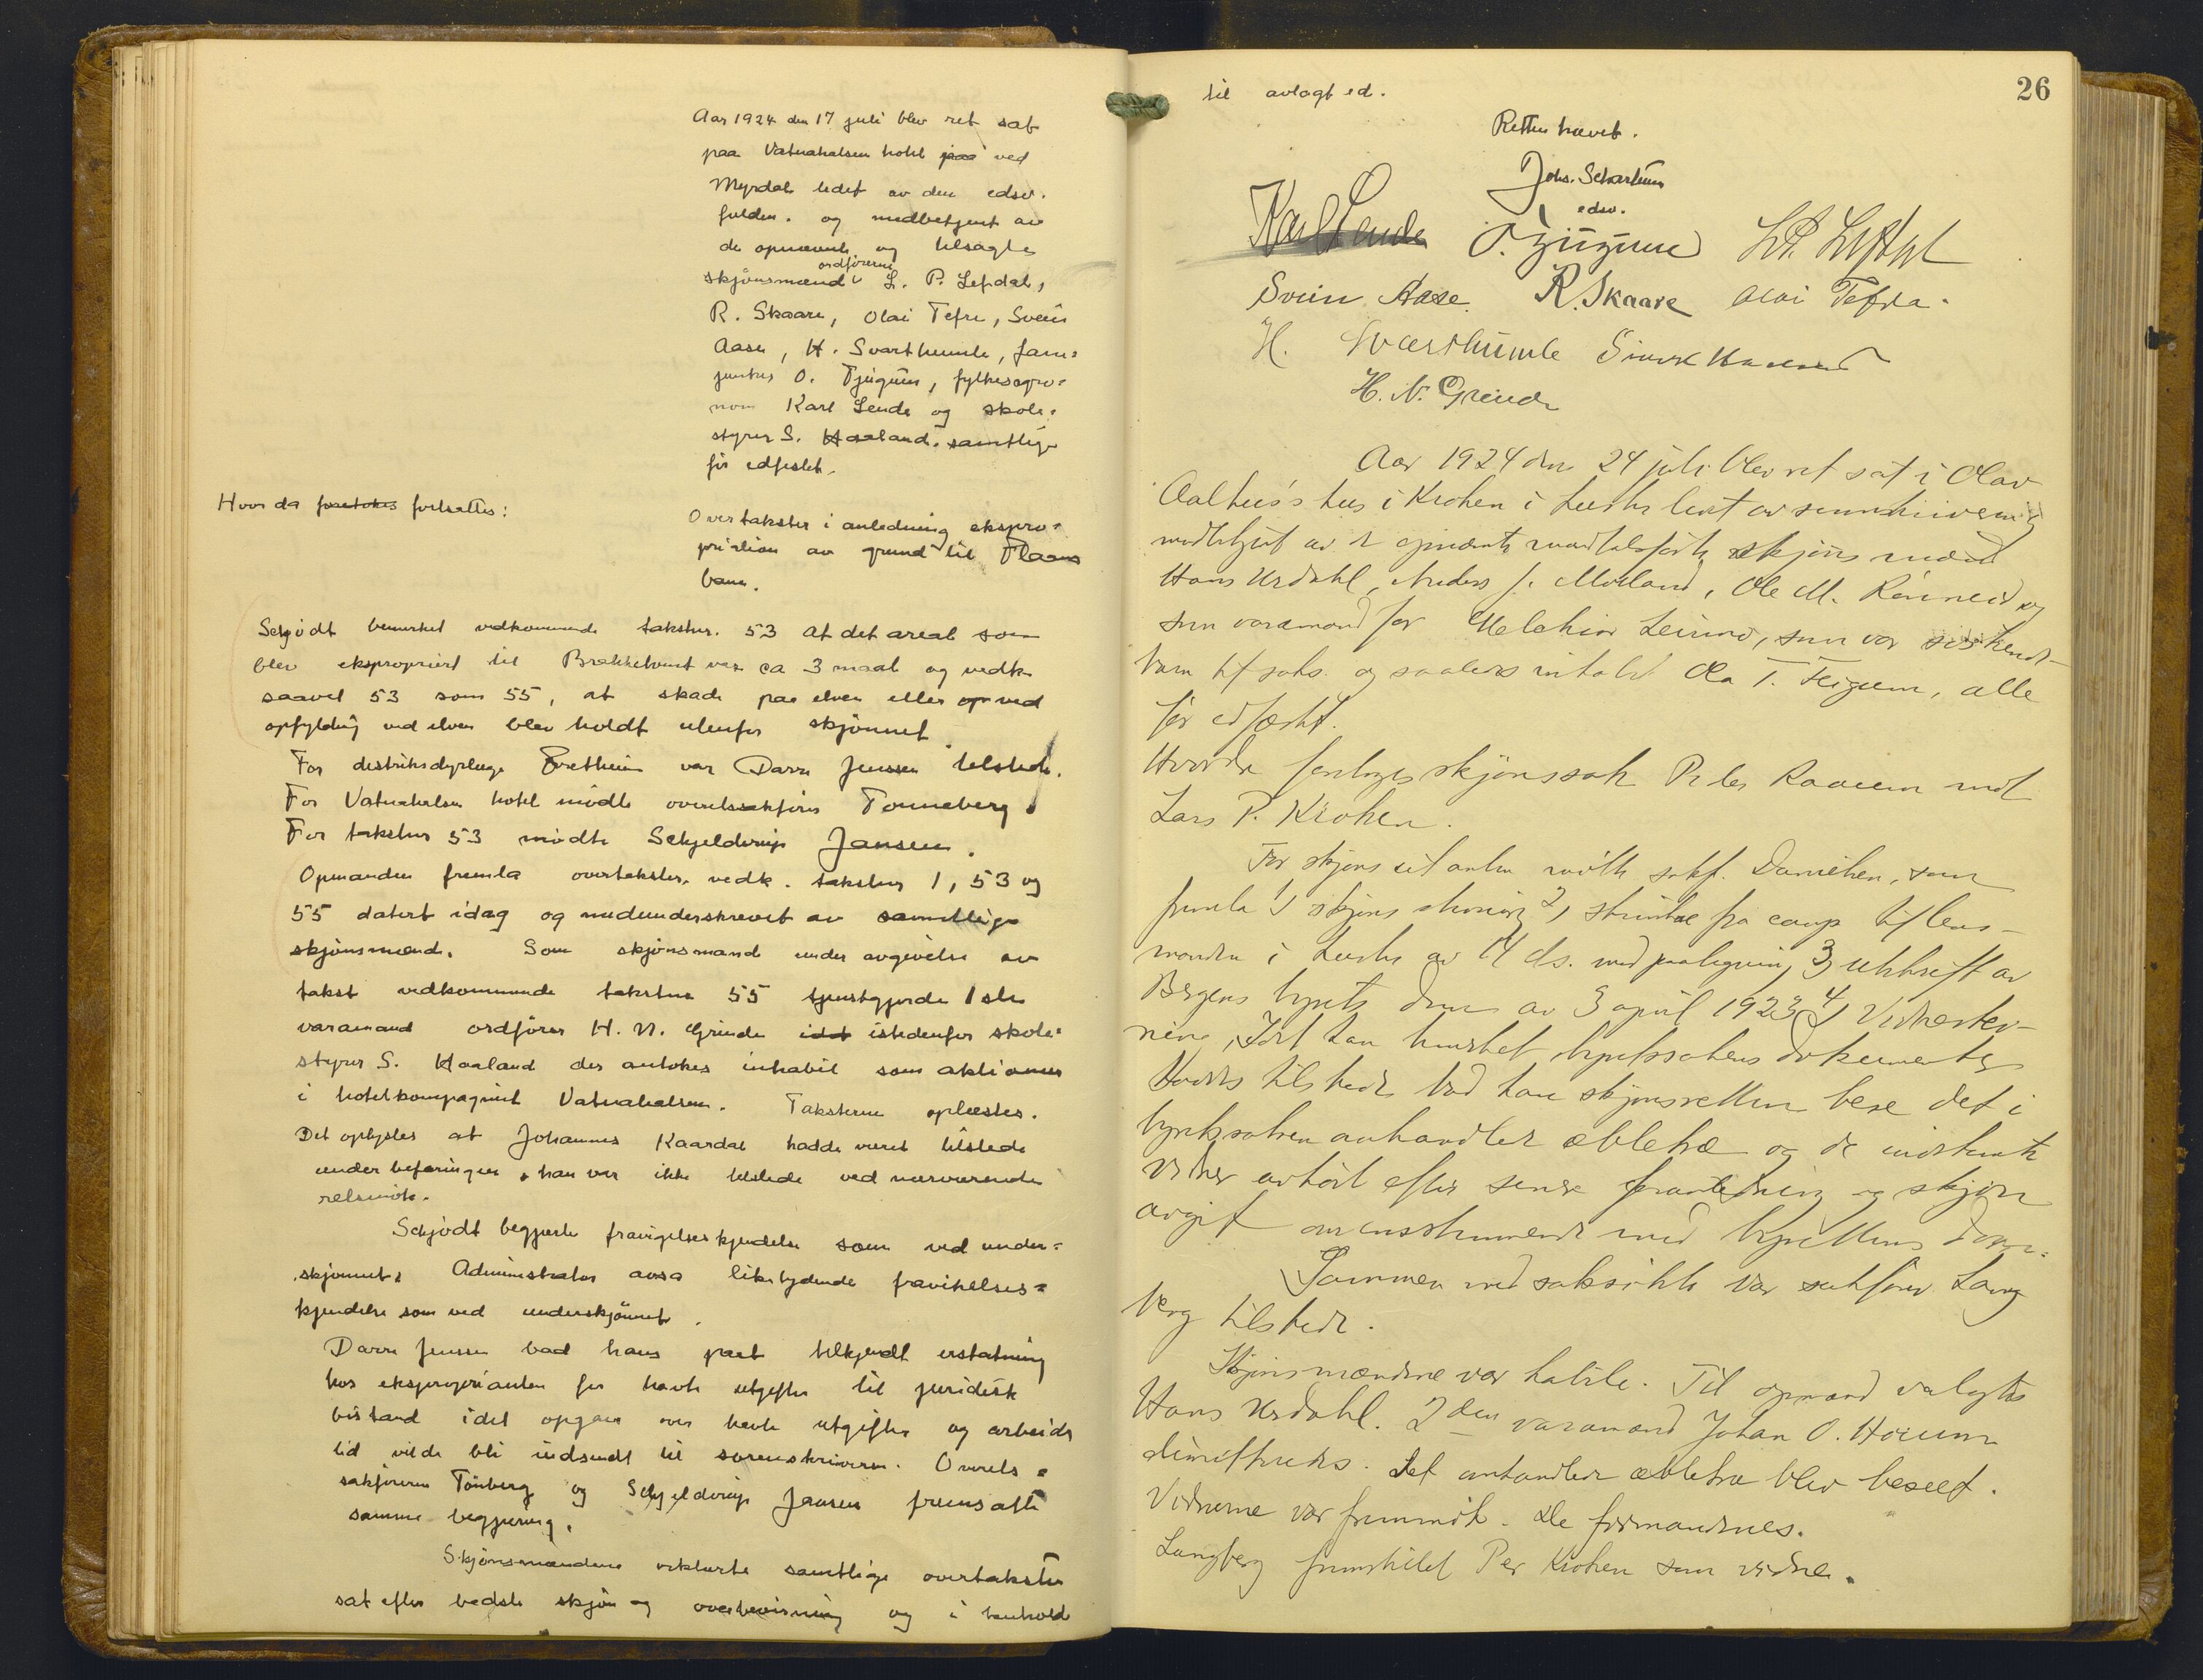 Aar 1924 den 17 juli blev ret sat
paa Vatnahalsen hotel paa ved
Myrdal ledet av den edsv.
fuldm. og medbetjent av
de opnævnte og tilsagte
ordförerne
skjönsmænd L. P. Lefdal,
R. Skaare, Olai Tefre, Svein
Aase, H. Svarthumle, jam-
junker O. Fjugum, fylkesagro-
nom Karl Lende og skole-
styrer S. Haaland. samtlige
för edfestet.
Hvor da foretokes fortsattes:
Overtakster i anledning ekspro-
priation av grund til Flaams
bana.
Schjödt bemerket vedkommende takstnr. 53 at det areal som
blev ekspropriert til Brekketunet var ca 3 maal og vedk
saavel 53 som 55, at skade paa elven eller op ved
opfylding ved elven blev holdt utenfor skjönnet.
For distriktsdyrlæge Bretheim var Darre Jenssen tilstede.
For Vatnahalsen hotel mödte overretssakförer Tonneberg
For takstnr 53 mödte Schjelderup Jansen.
Opmanden fremla overtakster vedk. takstnr 1, 53 og
55 datert idag og medunderskrevet av samtlige
skjönsmænd. Som skjönsmand under avgivelse av
takst vedkommende takstnr 55 tjenstgjorde 1ste
varamand ordförer H. N. Grinde idet istedenfor skole-
styrer S. Haaland der ansokes inhabil som aktionær
i hotelkompagniet Vatnahalsen. Taksterne oplæstes.
Det oplystes at Johannes Kaardal hadde været tilstede
under befaringen, han var ikke tilstede ved nærværende
retsmöte.
Schjödt begjærte fravigelseskjendelse som ved under-
skjönnet. Administrator avsa likelydende fravikelses-
kjendelse som ved underskjönnet.
Darre Jenssen bad hans part tilkjendt erstatning
hos eksproprianten for havte utgifter til juridisk
bistand idet opgave over havte utgifter og arbeids
tid vilde bli indsendt til sorenskriveren. Overrets-
sakförerne Tönberg og Schjelderup Jansen fremsatte
samme begjæring.
Skjönsmændene erklærte samtlige overtakster
sat efter bedste skjön og overbevisning og i henhold
26
til avlagt ed.
Retten hævet.
Johs. Schartum
edsv.
Karl Lende O. Fjugum L.P. Lefdal
Svein Aase. R. Skaare Olai Tefre.
H. Svarthumle Sjurd Haaland
H. N. Grinde
Aar 1924 den 24 juli blev ret sat i Olav
Aalhus's hus i Kroken i Luster ledet av sorenskriveren og
medbetjent av de opnævnte mandtalsförte skjöns mænd
Hans Urdahl, Anders J. Moland, Ole M. Röneid og
som varamand for Melchior Leirmo, som var
og saaledes intalt Ola T. Feigum, alle
för edfæstet.
Hvor da foretoges skjönssak Peder Raaum mot
Lars P. Kroken.
For skjöns citanten mötte sakf. Danielsen, som
fremla 1) skjöns stevning 2) skrivelse fra camp til lens-
manden i Luster av 14 ds. med paategning, 3) utskrift av
Bergens byrets dom av 3 april 1923, 4) Vidnestev-
ning, idet han bemerket byretssakens dokumenter
tilstede bad han skjönsretten bese det i
byretssaken omhandlet æbletræ og de indstevnte
vidner avhört efter senere foranledning og skjön
avgit overensstemmende med byrettens dom.
Sammen med saksökte var sakförer Lang
berg tilstede.
Skjönsmændene var habile. Til opmand valgtes
Hans Urdahl. 2den varamand Johan O. Höium
dimitteredes. Det omhandlede æbletræ blev beseet.
Vidnerne var fremmött. De formandnes.
Langberg fremstillet Per Kroken som vidne.